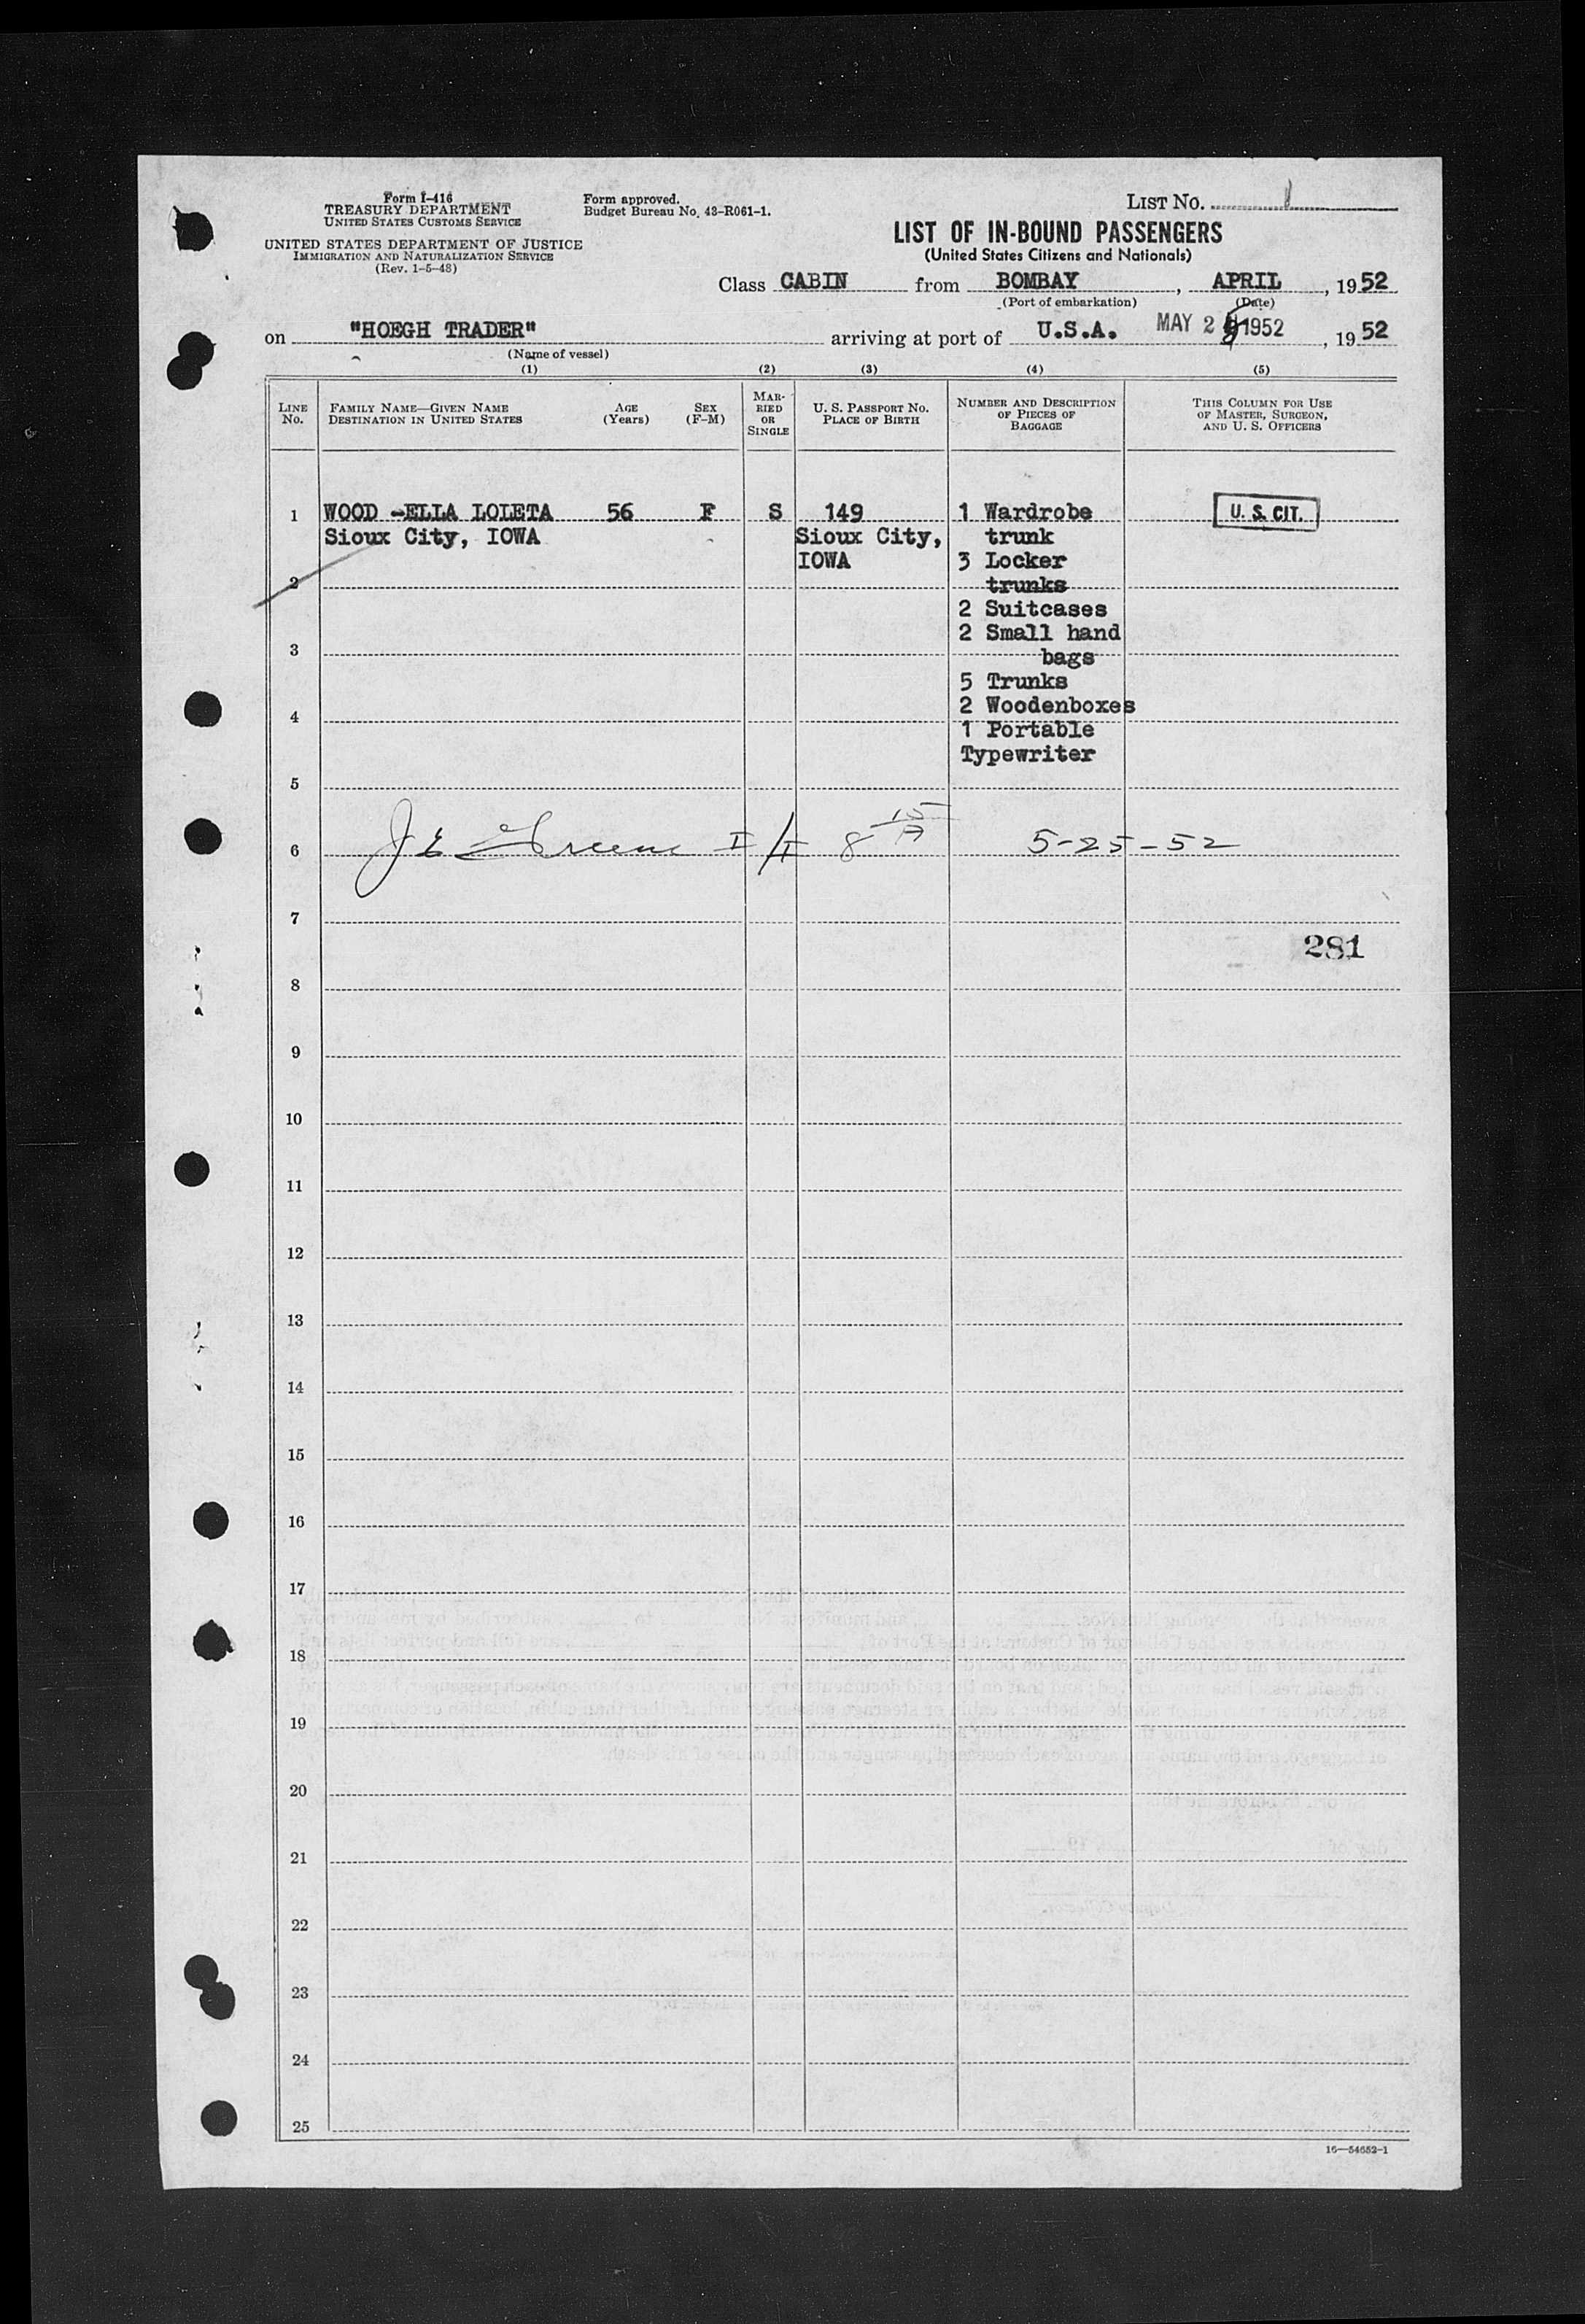 Form I-416
TREASURY DEPARTMENT
UNITED STATES CUSTOMS SERVICE
UNITED STATES DEPARTMENT OF JUSTICE
IMMIGRATION AND NATURALIZATION SERVICE
(Rev. 1-5-48)
Form approved.
Budget Bureau No. 43-R061-1.
LIST NO. 1
LIST OF IN-BOUND PASSENGERS
(United States Citizens and Nationals)
Class CABIN from BOMBAY, APRIL, 1952
(Port of embarkation) (Date)
on "HOEGH TRADER" arriving at port of U.S.A. MAY 25 1952, 1952
(Name of vessel)
(1) (2) (3) (4) (5)
LINE NO.
FAMILY NAME—GIVEN NAME
DESTINATION IN UNITED STATES
AGE (Years)
SEX (F-M)
MARRIED OR SINGLE
U. S. PASSPORT NO.
PLACE OF BIRTH
NUMBER AND DESCRIPTION
OF PIECES OF
BAGGAGE
THIS COLUMN FOR USE
OF MASTER, SURGEON,
AND U. S. OFFICERS
1 WOOD -ELLA LOLETA 56 F S 149 1 Wardrobe U. S. CIT.
Sioux City, IOWA Sioux City, trunk
IOWA 3 Locker
2 trunks
2 Suitcases
2 Small hand
3 bags
5 Trunks
4 2 Woodenboxes
1 Portable
Typewriter
5
6 J E Greene I/I 8 15 5-25-52
7
281
8
9
10
11
12
13
14
15
16
17
18
19
20
21
22
23
24
25
16—54652-1